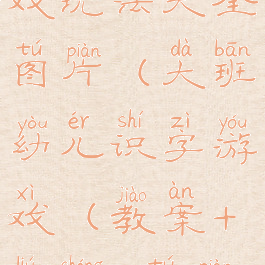 戏玩法大全
tú piàn dà bān
图片(大班
yòu ér shí zì yóu
幼儿识字游
xì jiào àn
戏(教案+